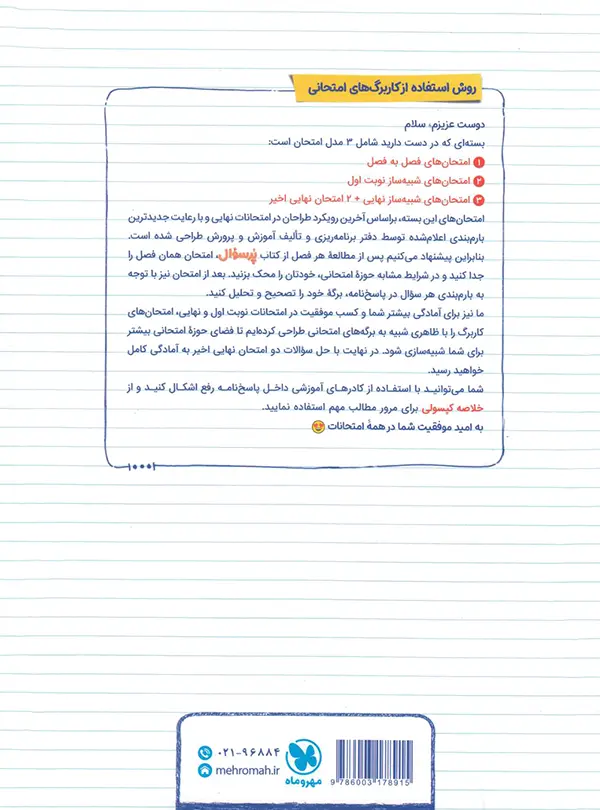 روش استفاده از کاربرگ‌های امتحانی
دوست عزیزم، سلام
بسته‌ای که در دست دارید شامل ۳ مدل امتحان است:
۱ امتحان‌های فصل به فصل
۲ امتحان‌های شبیه‌ساز نوبت اول
۳ امتحان‌های شبیه‌ساز نهایی + ۲ امتحان نهایی اخیر
امتحان‌های این بسته، براساس آخرین رویکرد طراحان در امتحانات نهایی و با رعایت جدیدترین
بارم‌بندی اعلام‌شده توسط دفتر برنامه‌ریزی و تألیف آموزش و پرورش طراحی شده است.
بنابراین پیشنهاد می‌کنیم پس از مطالعهٔ هر فصل از کتاب پُرسؤال، امتحان همان فصل را
جدا کنید و در شرایط مشابه حوزهٔ امتحانی، خودتان را محک بزنید. بعد از امتحان نیز با توجه
به بارم‌بندی هر سؤال در پاسخ‌نامه، برگهٔ خود را تصحیح و تحلیل کنید.
ما نیز برای آمادگی بیشتر شما و کسب موفقیت در امتحانات نوبت اول و نهایی، امتحان‌های
کاربرگ را با ظاهری شبیه به برگه‌های امتحانی طراحی کرده‌ایم تا فضای حوزهٔ امتحانی بیشتر
برای شما شبیه‌سازی شود. در نهایت با حل سؤالات دو امتحان نهایی اخیر به آمادگی کامل
خواهید رسید.
شما می‌توانید با استفاده از کادرهای آموزشی داخل پاسخ‌نامه رفع اشکال کنید و از
خلاصه کپسولی برای مرور مطالب مهم استفاده نمایید.
به امید موفقیت شما در همهٔ امتحانات
۰۲۱-۹۶۸۸۴
mehromah.ir
مهروماه
9 786003 178915